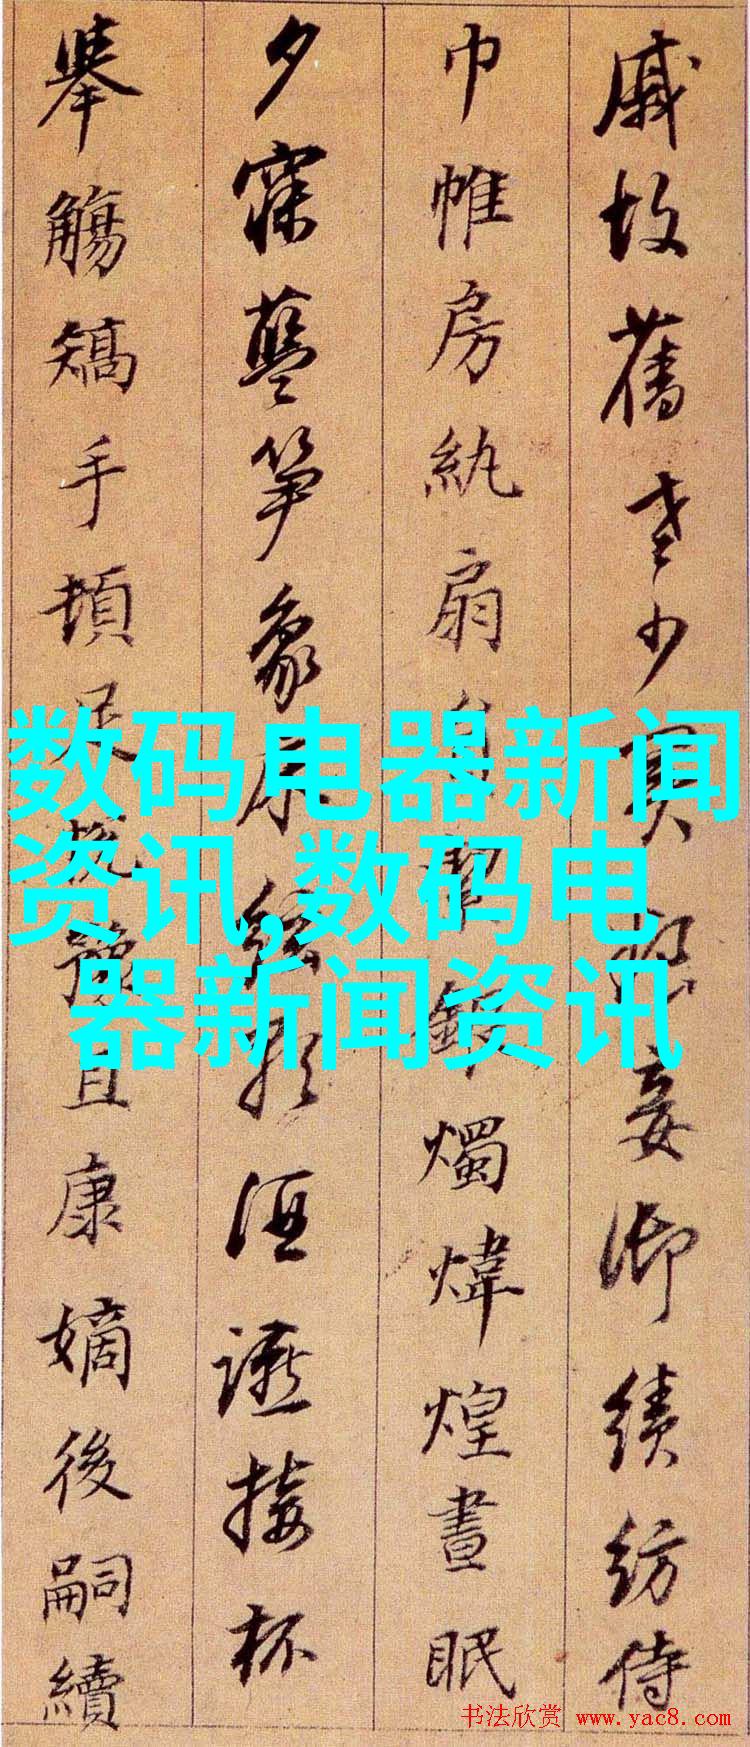 戚故舊老少異粮妾御績紡侍
巾帷房紈扇銀燭煒煌晝眠
夕寐藍笋象床絃歌酒讌接杯
舉觴矯手頓足悅豫且康嫡後嗣續
数码电器新闻
资讯,数码电
器新闻资讯
书法欣赏 www.yac8.com